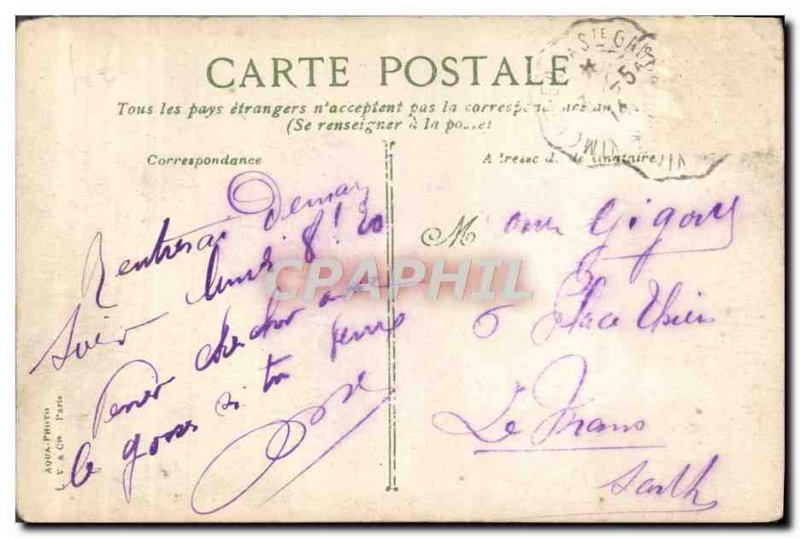 CARTE POSTALE
Tous les pays étrangers n'acceptent pas la correspondance au
(Se renseigner à la poste)
Correspondance
Adresse du destinataire
Rentrerai Demain
soir lundi 8h 20
Venez chercher avec
le gosse si tu peux
M
Gigou
6 Place Thiers
Le Mans
Sarth
CPRAPHIL
AQUA-PHOTO
L. V. & Cie Paris